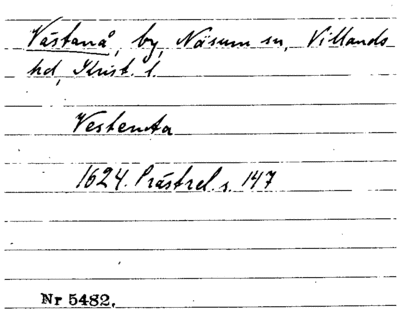 Västanå, by, Näsum sn, Villands
hd, Krist. l.
Vestenta
1624. Prästrel s. 147
Nr 5482.